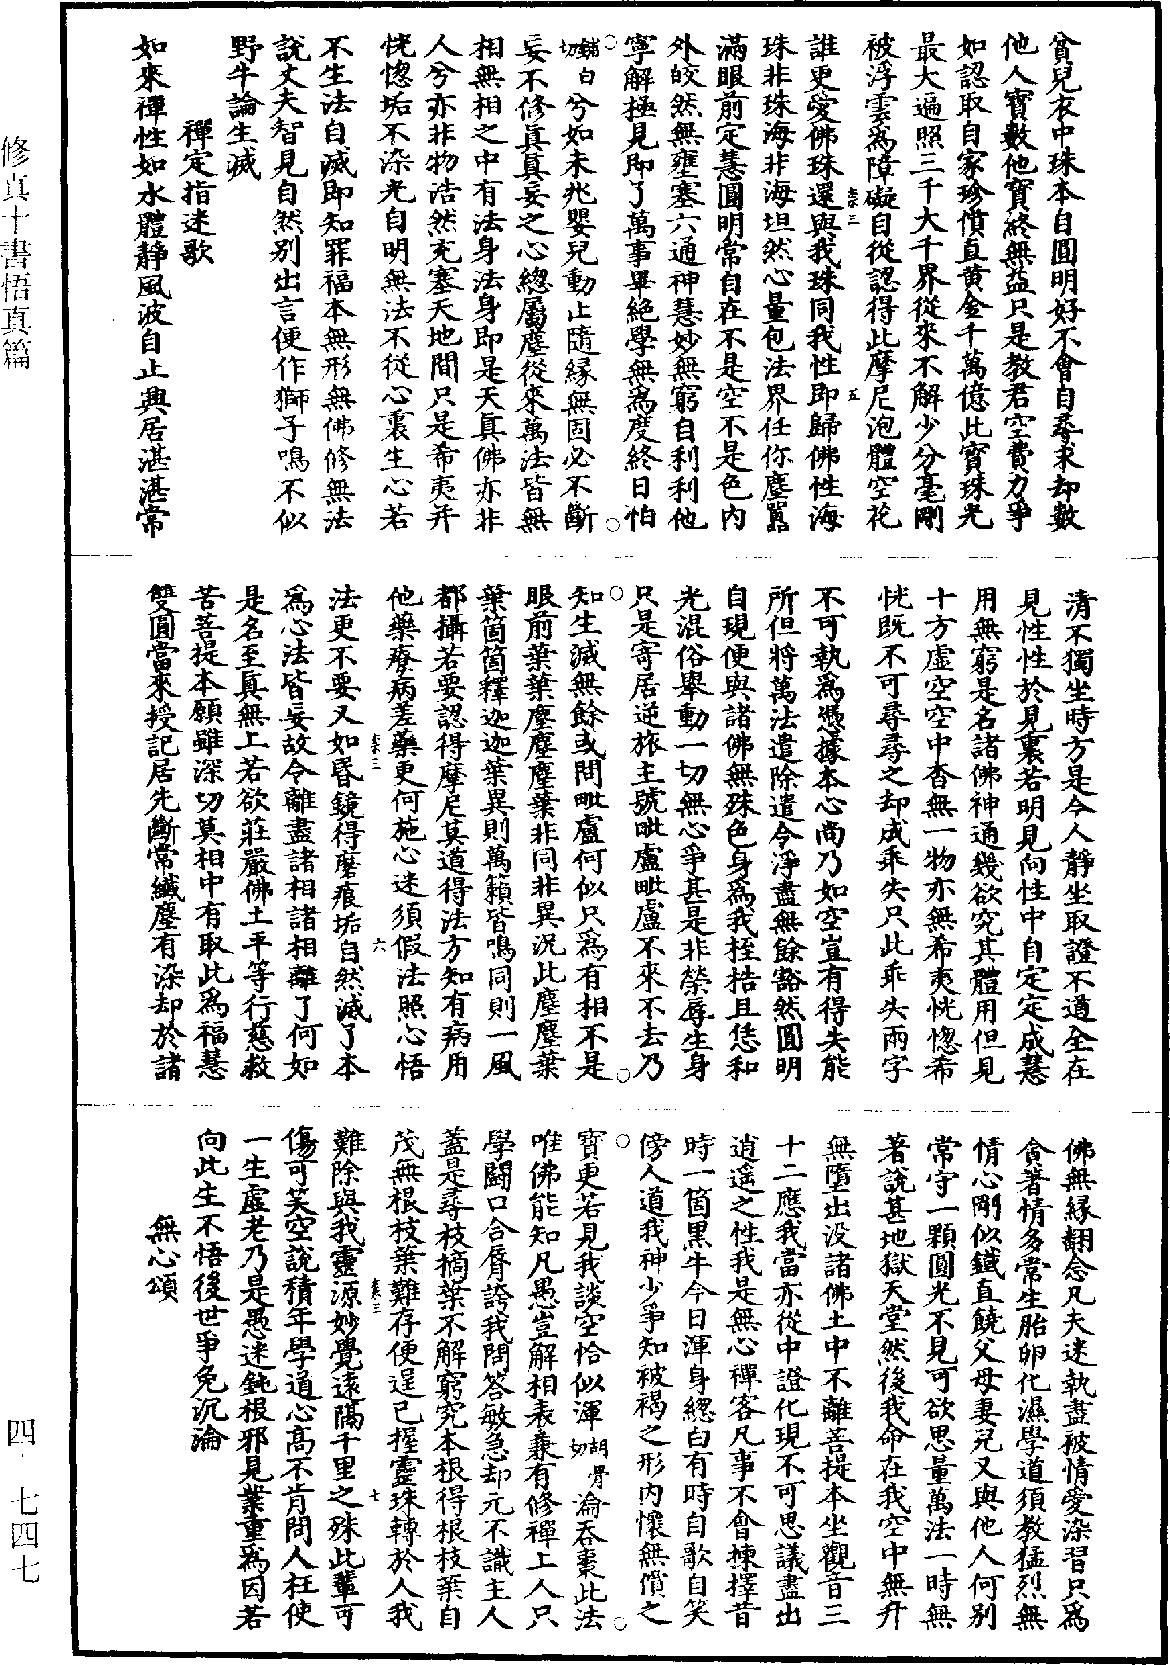 貧兒衣中珠本自圓明好不會自尋求却數
他人寶數他寶終無益只是教君空費力爭
如認取自家珍價直黃金千萬億此寶珠光
最大遍照三千大千界從來不解少分毫剛
被浮雲爲障礙自從認得此摩尼泡體空花
誰更愛佛珠還與我珠同我性即歸佛性海
珠非珠海非海坦然心量包法界任你塵囂
滿眼前定慧圓明常自在不是空不是色內
外皎然無壅塞六通神慧妙無窮自利利他
寧解極見即了萬事畢絕學無爲度終日怕
輔切白兮如未兆嬰兒動止隨緣無固必不斷
妄不修真真妄之心總屬塵從來萬法皆無
相無相之中有法身法身即是天真佛亦非
人兮亦非物浩然充塞天地間只是希夷并
恍惚垢不染光自明無法不從心裏生心若
不生法自滅即知罪福本無形無佛修無法
說丈夫智見自然別出言便作獅子鳴不似
野牛論生滅
禪定指迷歌
如來禪性如水體靜風波自止興居湛湛常
清不獨坐時方是今人靜坐取證不道全在
見性性於見裏若明見向性中自定定成慧
用無窮是名諸佛神通幾欲究其體用但見
十方虛空空中杳無一物亦無希夷恍惚希
恍既不可尋尋之却成乖失只此乖失兩字
不可執爲憑據本心尚乃如空豈有得失能
所但將萬法遣除遣令淨盡無餘豁然圓明
自現便與諸佛無殊色身爲我桎梏且恁和
光混俗舉動一切無心爭甚是非榮辱生身
只是寄居逆旅主號毗盧毗盧不來不去乃
知生滅無餘或問毗盧何似只爲有相不是
眼前葉葉塵塵塵葉非同非異況此塵塵葉
葉箇箇釋迦迦葉異則萬籟皆鳴同則一風
都攝若要認得摩尼莫道得法方知有病用
他藥療病差藥更何施心迷須假法照心悟
法更不要又如昏鏡得磨痕垢自然滅了本
爲心法皆妄故令離盡諸相諸相離了何如
是名至真無上若欲莊嚴佛土平等行慈救
苦菩提本願雖深切莫相中有取此爲福慧
雙圓當來授記居先斷常纖塵有染却於諸
佛無緣翻念凡夫迷執盡被情愛染習只爲
貪著情多常生胎卵化濕學道須教猛烈無
情心剛似鐵直饒父母妻兒又與他人何別
常守一顆圓光不見可欲思量萬法一時無
著說甚地獄天堂然後我命在我空中無升
無墮出沒諸佛土中不離菩提本坐觀音三
十二應我當亦從中證化現不可思議盡出
逍遙之性我是無心禪客凡事不會揀擇昔
時一箇黑牛今日渾身總白有時自歌自笑
傍人道我神少爭知被褐之形內懷無價之
寶更若見我談空恰似渾胡骨切淪吞棗此法
唯佛能知凡愚豈解相表兼有修禪上人只
學鬭口合脣誇我問答敏急却元不識主人
蓋是尋枝摘葉不解窮究本根得根枝葉自
茂無根枝葉難存便逞已握靈珠轉於人我
難除與我靈源妙覺遠隔千里之殊此輩可
傷可笑空說積年學道心高不肯問人枉使
一生虛老乃是愚迷鈍根邪見業重爲因若
向此生不悟後世爭免沉淪
無心頌
修真十書悟真篇
四·七四七